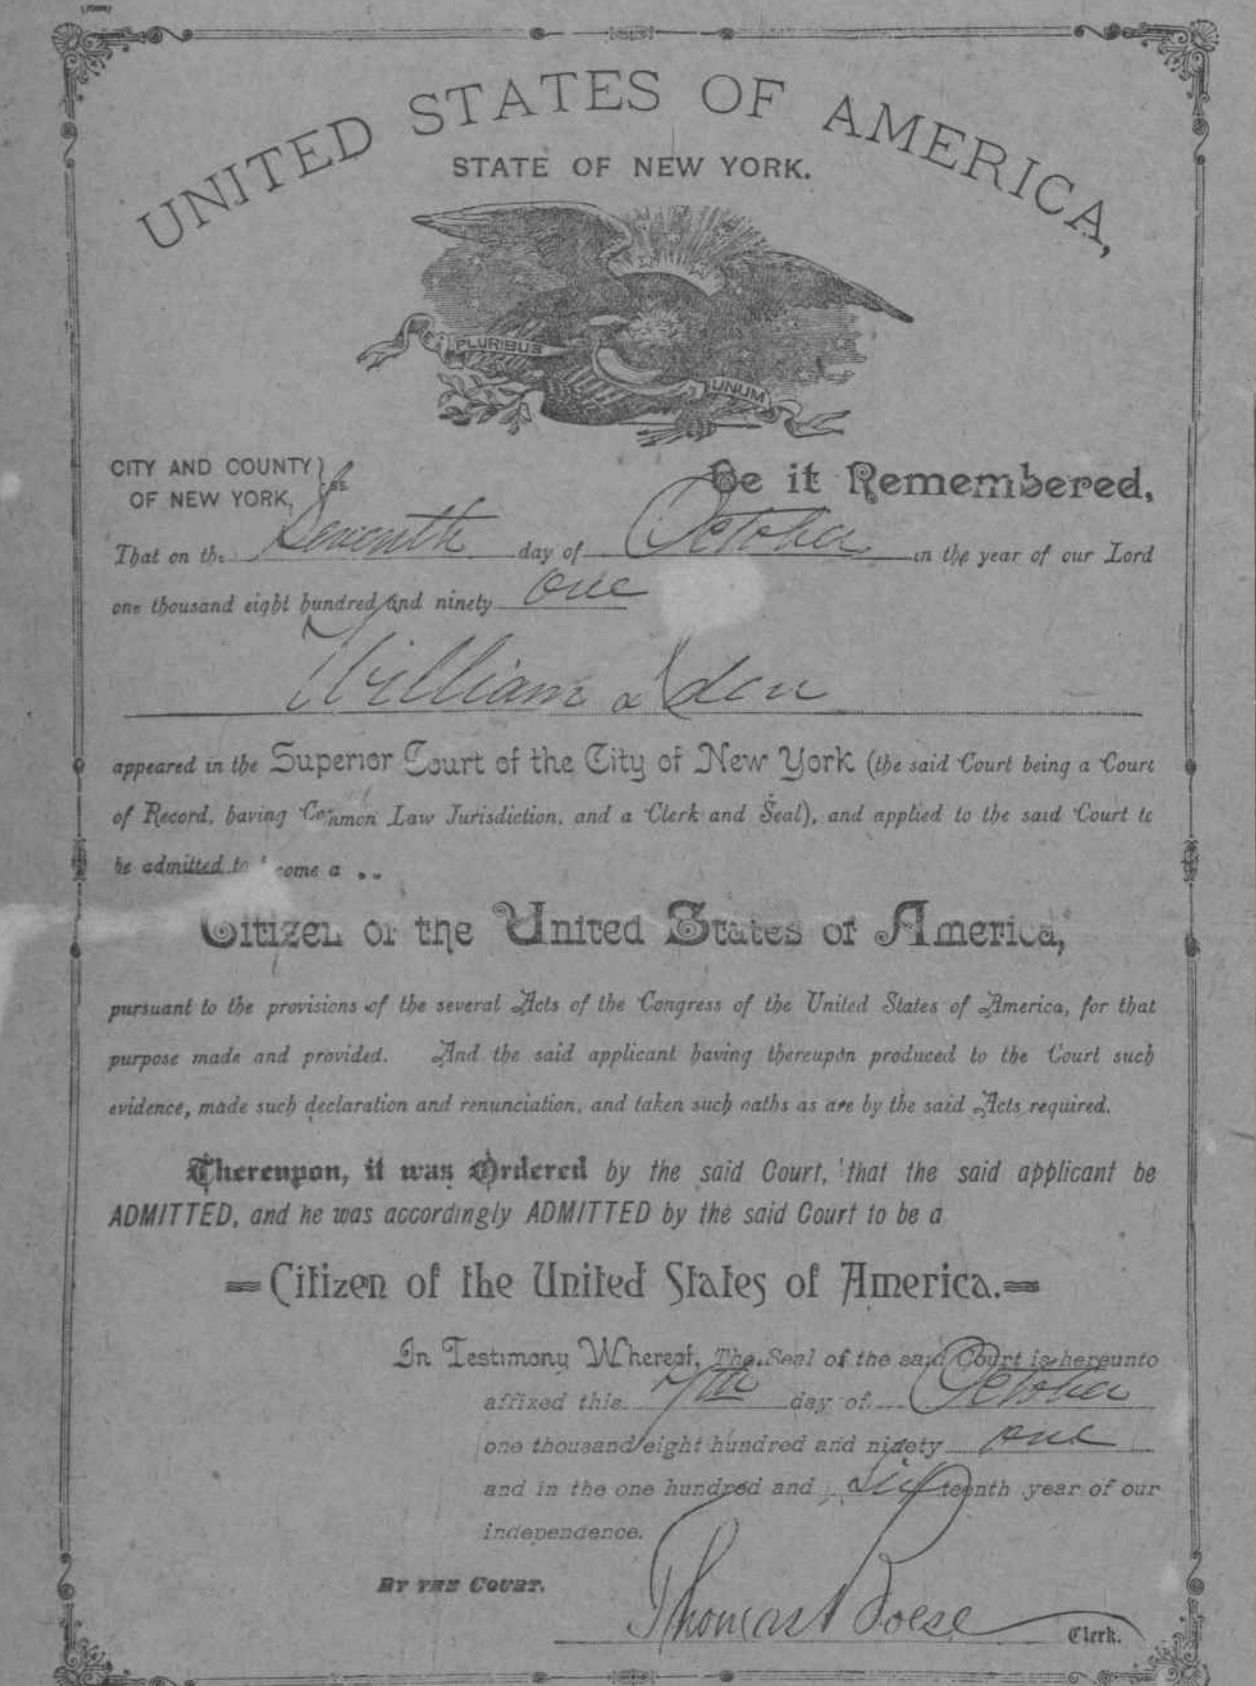 UNITED STATES OF AMERICA,
STATE OF NEW YORK.
PLURIBUS
UNUM
CITY AND COUNTY
OF NEW YORK, } ss.
Be it Remembered,
That on the Seventh day of October in the year of our Lord
one thousand eight hundred and ninety one
William
appeared in the Superior Court of the City of New York (the said Court being a Court
of Record, having Common Law Jurisdiction, and a Clerk and Seal), and applied to the said Court to
be admitted to become a ..
Citizen of the United States of America,
pursuant to the provisions of the several Acts of the Congress of the United States of America, for that
purpose made and provided. And the said applicant having thereupon produced to the Court such
evidence, made such declaration and renunciation, and taken such oaths as are by the said Acts required.
Thereupon, it was Ordered by the said Court, that the said applicant be
ADMITTED, and he was accordingly ADMITTED by the said Court to be a
Citizen of the United States of America.
In Testimony Whereof, The Seal of the said Court is hereunto
affixed this 7th day of October
one thousand eight hundred and ninety one
and in the one hundred and sixteenth year of our
independence.
BY THE COURT.
Thomas Boese Clerk.